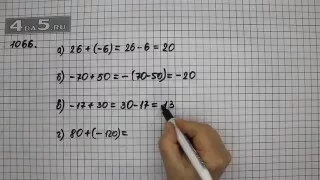 4DA5.RU
1066.
а) 26 + (-6) = 26 - 6 = 20
б) -70 + 50 = - (70 - 50) = - 20
в) -17 + 30 = 30 - 17 = 13
г) 80 + (- 120) =